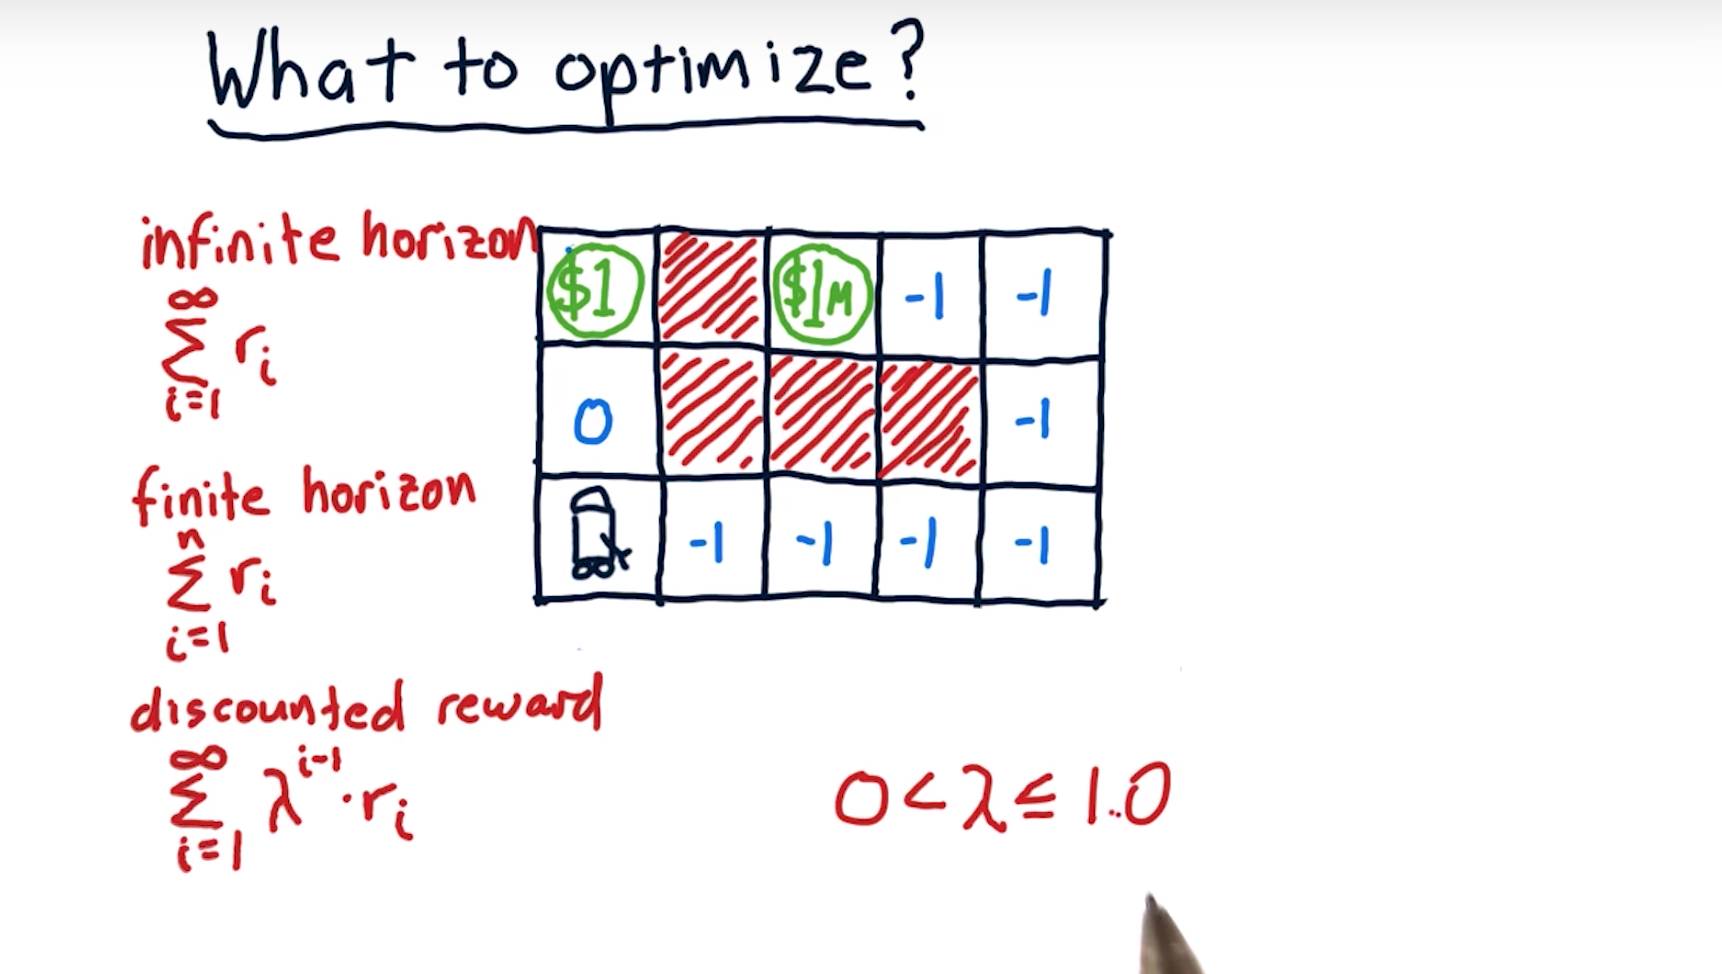 What to optimize?
infinite horizon
∞
Σ rᵢ
i=1
finite horizon
n
Σ rᵢ
i=1
discounted reward
∞
Σ λⁱ⁻¹ · rᵢ
i=1
$1 $1M -1 -1
0 -1
-1 -1 -1 -1
0 < λ ≤ 1.0